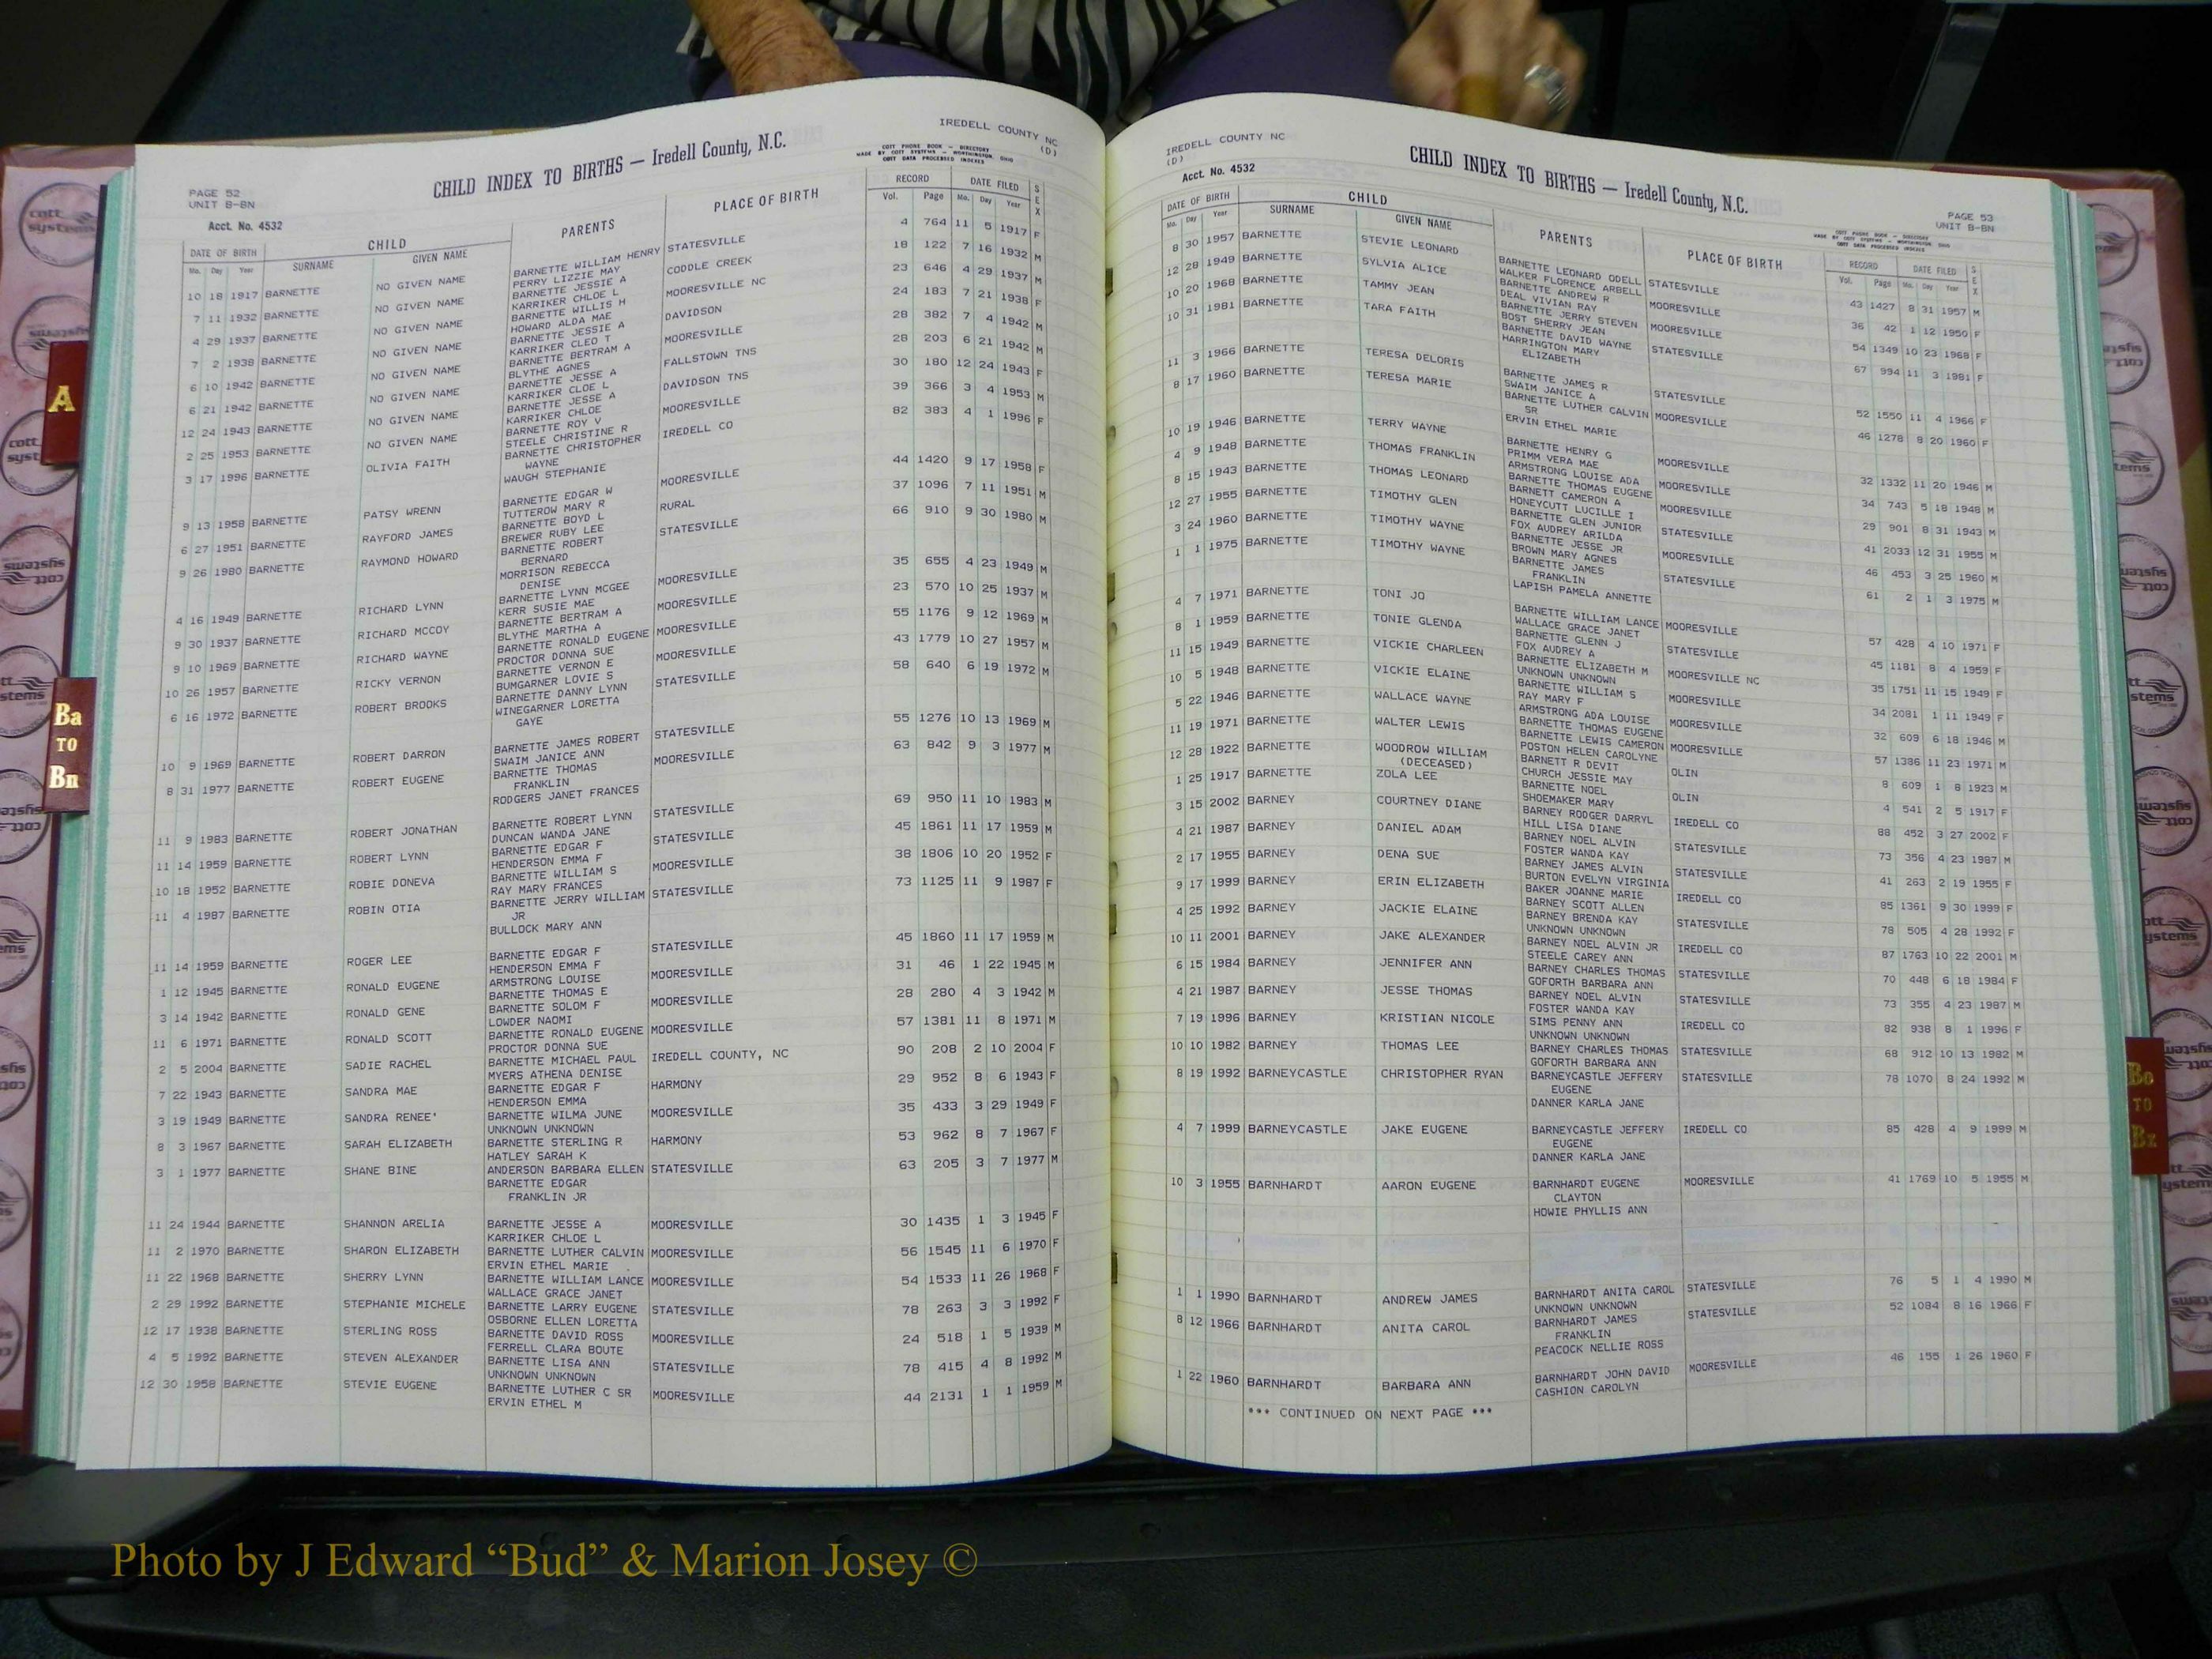 IREDELL COUNTY NC
(D)
CHILD INDEX TO BIRTHS — Iredell County, N.C.
COTT PHONE BOOK — DIRECTORY
MADE BY COTT SYSTEMS — WORTHINGTON, OHIO
COTT DATA PROCESSED INDEXES
PAGE 52
UNIT B-BN
Acct. No. 4532
DATE OF BIRTH CHILD PARENTS PLACE OF BIRTH RECORD DATE FILED SEX
Mo. Day Year SURNAME GIVEN NAME Vol. Page Mo. Day Year
10 18 1917 BARNETTE NO GIVEN NAME BARNETTE WILLIAM HENRY STATESVILLE 4 764 11 5 1917 F
PERRY LIZZIE MAY
7 11 1932 BARNETTE NO GIVEN NAME BARNETTE JESSIE A CODDLE CREEK 18 122 7 16 1932 M
KARRIKER CHLOE L
4 29 1937 BARNETTE NO GIVEN NAME BARNETTE WILLIS H MOORESVILLE NC 23 646 4 29 1937 M
HOWARD ALDA MAE
7 2 1938 BARNETTE NO GIVEN NAME BARNETTE JESSIE A DAVIDSON 24 183 7 21 1938 F
KARRIKER CLEO T
6 10 1942 BARNETTE NO GIVEN NAME BARNETTE BERTRAM A MOORESVILLE 28 382 7 4 1942 M
BLYTHE AGNES
6 21 1942 BARNETTE NO GIVEN NAME BARNETTE JESSE A FALLSTOWN TNS 28 203 6 21 1942 M
KARRIKER CLOE L
12 24 1943 BARNETTE NO GIVEN NAME BARNETTE JESSE A DAVIDSON TNS 30 180 12 24 1943 F
KARRIKER CHLOE
2 25 1953 BARNETTE NO GIVEN NAME BARNETTE ROY V MOORESVILLE 39 366 3 4 1953 M
STEELE CHRISTINE R
3 17 1996 BARNETTE OLIVIA FAITH BARNETTE CHRISTOPHER IREDELL CO 82 383 4 1 1996 F
WAYNE
WAUGH STEPHANIE
9 13 1958 BARNETTE PATSY WRENN BARNETTE EDGAR W MOORESVILLE 44 1420 9 17 1958 F
TUTTEROW MARY R
6 27 1951 BARNETTE RAYFORD JAMES BARNETTE BOYD L RURAL 37 1096 7 11 1951 M
BREWER RUBY LEE
9 26 1980 BARNETTE RAYMOND HOWARD BARNETTE ROBERT STATESVILLE 66 910 9 30 1980 M
BERNARD
MORRISON REBECCA
DENISE
4 16 1949 BARNETTE RICHARD LYNN BARNETTE LYNN MCGEE MOORESVILLE 35 655 4 23 1949 M
KERR SUSIE MAE
9 30 1937 BARNETTE RICHARD MCCOY BARNETTE BERTRAM A MOORESVILLE 23 570 10 25 1937 M
BLYTHE MARTHA A
9 10 1969 BARNETTE RICHARD WAYNE BARNETTE RONALD EUGENE MOORESVILLE 55 1176 9 12 1969 M
PROCTOR DONNA SUE
10 26 1957 BARNETTE RICKY VERNON BARNETTE VERNON E MOORESVILLE 43 1779 10 27 1957 M
BUMGARNER LOVIE S
6 16 1972 BARNETTE ROBERT BROOKS BARNETTE DANNY LYNN STATESVILLE 58 640 6 19 1972 M
WINEGARNER LORETTA
GAYE
10 9 1969 BARNETTE ROBERT DARRON BARNETTE JAMES ROBERT STATESVILLE 55 1276 10 13 1969 M
SWAIM JANICE ANN
8 31 1977 BARNETTE ROBERT EUGENE BARNETTE THOMAS MOORESVILLE 63 842 9 3 1977 M
FRANKLIN
RODGERS JANET FRANCES
11 9 1983 BARNETTE ROBERT JONATHAN BARNETTE ROBERT LYNN STATESVILLE 69 950 11 10 1983 M
DUNCAN WANDA JANE
11 14 1959 BARNETTE ROBERT LYNN BARNETTE EDGAR F STATESVILLE 45 1861 11 17 1959 M
HENDERSON EMMA F
10 18 1952 BARNETTE ROBIE DONEVA BARNETTE WILLIAM S MOORESVILLE 38 1806 10 20 1952 F
RAY MARY FRANCES
11 4 1987 BARNETTE ROBIN OTIA BARNETTE JERRY WILLIAM STATESVILLE 73 1125 11 9 1987 F
JR
BULLOCK MARY ANN
11 14 1959 BARNETTE ROGER LEE BARNETTE EDGAR F STATESVILLE 45 1860 11 17 1959 M
HENDERSON EMMA F
1 12 1945 BARNETTE RONALD EUGENE ARMSTRONG LOUISE MOORESVILLE 31 46 1 22 1945 M
BARNETTE THOMAS E
3 14 1942 BARNETTE RONALD GENE BARNETTE SOLOM F MOORESVILLE 28 280 4 3 1942 M
LOWDER NAOMI
11 6 1971 BARNETTE RONALD SCOTT BARNETTE RONALD EUGENE MOORESVILLE 57 1381 11 8 1971 M
PROCTOR DONNA SUE
2 5 2004 BARNETTE SADIE RACHEL BARNETTE MICHAEL PAUL IREDELL COUNTY, NC 90 208 2 10 2004 F
MYERS ATHENA DENISE
7 22 1943 BARNETTE SANDRA MAE BARNETTE EDGAR F HARMONY 29 952 8 6 1943 F
HENDERSON EMMA
3 19 1949 BARNETTE SANDRA RENEE' BARNETTE WILMA JUNE MOORESVILLE 35 433 3 29 1949 F
UNKNOWN UNKNOWN
8 3 1967 BARNETTE SARAH ELIZABETH BARNETTE STERLING R HARMONY 53 962 8 7 1967 F
HATLEY SARAH K
3 1 1977 BARNETTE SHANE BINE ANDERSON BARBARA ELLEN STATESVILLE 63 205 3 7 1977 M
BARNETTE EDGAR
FRANKLIN JR
11 24 1944 BARNETTE SHANNON ARELIA BARNETTE JESSE A MOORESVILLE 30 1435 1 3 1945 F
KARRIKER CHLOE L
11 2 1970 BARNETTE SHARON ELIZABETH BARNETTE LUTHER CALVIN MOORESVILLE 56 1545 11 6 1970 F
ERVIN ETHEL MARIE
11 22 1968 BARNETTE SHERRY LYNN BARNETTE WILLIAM LANCE MOORESVILLE 54 1533 11 26 1968 F
WALLACE GRACE JANET
2 29 1992 BARNETTE STEPHANIE MICHELE BARNETTE LARRY EUGENE STATESVILLE 78 263 3 3 1992 F
OSBORNE ELLEN LORETTA
12 17 1938 BARNETTE STERLING ROSS BARNETTE DAVID ROSS MOORESVILLE 24 518 1 5 1939 M
FERRELL CLARA BOUTE
4 5 1992 BARNETTE STEVEN ALEXANDER BARNETTE LISA ANN STATESVILLE 78 415 4 8 1992 M
UNKNOWN UNKNOWN
12 30 1958 BARNETTE STEVIE EUGENE BARNETTE LUTHER C SR MOORESVILLE 44 2131 1 1 1959 M
ERVIN ETHEL M
IREDELL COUNTY NC
(D)
Acct. No. 4532
CHILD INDEX TO BIRTHS — Iredell County, N.C.
PAGE 53
UNIT B-BN
COTT PHONE BOOK — DIRECTORY
MADE BY COTT SYSTEMS — WORTHINGTON, OHIO
COTT DATA PROCESSED INDEXES
DATE OF BIRTH CHILD PARENTS PLACE OF BIRTH RECORD DATE FILED SEX
Mo. Day Year SURNAME GIVEN NAME Vol. Page Mo. Day Year
8 30 1957 BARNETTE STEVIE LEONARD BARNETTE LEONARD ODELL STATESVILLE 43 1427 8 31 1957 M
WALKER FLORENCE ARBELL
12 28 1949 BARNETTE SYLVIA ALICE BARNETTE ANDREW R MOORESVILLE 36 42 1 12 1950 F
DEAL VIVIAN RAY
10 20 1968 BARNETTE TAMMY JEAN BARNETTE JERRY STEVEN MOORESVILLE 54 1349 10 23 1968 F
BOST SHERRY JEAN
10 31 1981 BARNETTE TARA FAITH BARNETTE DAVID WAYNE STATESVILLE 67 994 11 3 1981 F
HARRINGTON MARY
ELIZABETH
11 3 1966 BARNETTE TERESA DELORIS BARNETTE JAMES R STATESVILLE 52 1550 11 4 1966 F
SWAIM JANICE A
8 17 1960 BARNETTE TERESA MARIE BARNETTE LUTHER CALVIN MOORESVILLE 46 1278 8 20 1960 F
SR
ERVIN ETHEL MARIE
10 19 1946 BARNETTE TERRY WAYNE BARNETTE HENRY G MOORESVILLE 32 1332 11 20 1946 M
PRIMM VERA MAE
4 9 1948 BARNETTE THOMAS FRANKLIN ARMSTRONG LOUISE ADA MOORESVILLE 34 743 5 18 1948 M
BARNETTE THOMAS EUGENE
8 15 1943 BARNETTE THOMAS LEONARD BARNETT CAMERON A MOORESVILLE 29 901 8 31 1943 M
HONEYCUTT LUCILLE I
12 27 1955 BARNETTE TIMOTHY GLEN BARNETTE GLEN JUNIOR STATESVILLE 41 2033 12 31 1955 M
FOX AUDREY ARILDA
3 24 1960 BARNETTE TIMOTHY WAYNE BARNETTE JESSE JR MOORESVILLE 46 453 3 25 1960 M
BROWN MARY AGNES
1 1 1975 BARNETTE TIMOTHY WAYNE BARNETTE JAMES STATESVILLE 61 2 1 3 1975 M
FRANKLIN
LAPISH PAMELA ANNETTE
4 7 1971 BARNETTE TONI JO BARNETTE WILLIAM LANCE MOORESVILLE 57 428 4 10 1971 F
WALLACE GRACE JANET
8 1 1959 BARNETTE TONIE GLENDA BARNETTE GLENN J STATESVILLE 45 1181 8 4 1959 F
FOX AUDREY A
11 15 1949 BARNETTE VICKIE CHARLEEN BARNETTE ELIZABETH M MOORESVILLE NC 35 1751 11 15 1949 F
UNKNOWN UNKNOWN
10 5 1948 BARNETTE VICKIE ELAINE BARNETTE WILLIAM S MOORESVILLE 34 2081 1 11 1949 F
RAY MARY F
5 22 1946 BARNETTE WALLACE WAYNE ARMSTRONG ADA LOUISE MOORESVILLE 32 609 6 18 1946 M
BARNETTE THOMAS EUGENE
11 19 1971 BARNETTE WALTER LEWIS BARNETTE LEWIS CAMERON MOORESVILLE 57 1386 11 23 1971 M
POSTON HELEN CAROLYNE
12 28 1922 BARNETTE WOODROW WILLIAM BARNETT R DEVIT OLIN 8 609 1 8 1923 M
(DECEASED) CHURCH JESSIE MAY
1 25 1917 BARNETTE ZOLA LEE BARNETTE NOEL OLIN 4 541 2 5 1917 F
SHOEMAKER MARY
3 15 2002 BARNEY COURTNEY DIANE BARNEY RODGER DARRYL IREDELL CO 88 452 3 27 2002 F
HILL LISA DIANE
4 21 1987 BARNEY DANIEL ADAM BARNEY NOEL ALVIN STATESVILLE 73 356 4 23 1987 M
FOSTER WANDA KAY
2 17 1955 BARNEY DENA SUE BARNEY JAMES ALVIN STATESVILLE 41 263 2 19 1955 F
BURTON EVELYN VIRGINIA
9 17 1999 BARNEY ERIN ELIZABETH BAKER JOANNE MARIE IREDELL CO 85 1361 9 30 1999 F
BARNEY SCOTT ALLEN
4 25 1992 BARNEY JACKIE ELAINE BARNEY BRENDA KAY STATESVILLE 78 505 4 28 1992 F
UNKNOWN UNKNOWN
10 11 2001 BARNEY JAKE ALEXANDER BARNEY NOEL ALVIN JR IREDELL CO 87 1763 10 22 2001 M
STEELE CAREY ANN
6 15 1984 BARNEY JENNIFER ANN BARNEY CHARLES THOMAS STATESVILLE 70 448 6 18 1984 F
GOFORTH BARBARA ANN
4 21 1987 BARNEY JESSE THOMAS BARNEY NOEL ALVIN STATESVILLE 73 355 4 23 1987 M
FOSTER WANDA KAY
7 19 1996 BARNEY KRISTIAN NICOLE SIMS PENNY ANN IREDELL CO 82 938 8 1 1996 F
UNKNOWN UNKNOWN
10 10 1982 BARNEY THOMAS LEE BARNEY CHARLES THOMAS STATESVILLE 68 912 10 13 1982 M
GOFORTH BARBARA ANN
8 19 1992 BARNEYCASTLE CHRISTOPHER RYAN BARNEYCASTLE JEFFERY STATESVILLE 78 1070 8 24 1992 M
EUGENE
DANNER KARLA JANE
4 7 1999 BARNEYCASTLE JAKE EUGENE BARNEYCASTLE JEFFERY IREDELL CO 85 428 4 9 1999 M
EUGENE
DANNER KARLA JANE
10 3 1955 BARNHARDT AARON EUGENE BARNHARDT EUGENE MOORESVILLE 41 1769 10 5 1955 M
CLAYTON
HOWIE PHYLLIS ANN
1 1 1990 BARNHARDT ANDREW JAMES BARNHARDT ANITA CAROL STATESVILLE 76 5 1 4 1990 M
UNKNOWN UNKNOWN
8 12 1966 BARNHARDT ANITA CAROL BARNHARDT JAMES STATESVILLE 52 1084 8 16 1966 F
FRANKLIN
PEACOCK NELLIE ROSS
1 22 1960 BARNHARDT BARBARA ANN BARNHARDT JOHN DAVID MOORESVILLE 46 155 1 26 1960 F
CASHION CAROLYN
*** CONTINUED ON NEXT PAGE ***
A
Ba
TO
Bn
Bo
TO
Bz
cott
systems
Photo by J Edward “Bud” & Marion Josey ©